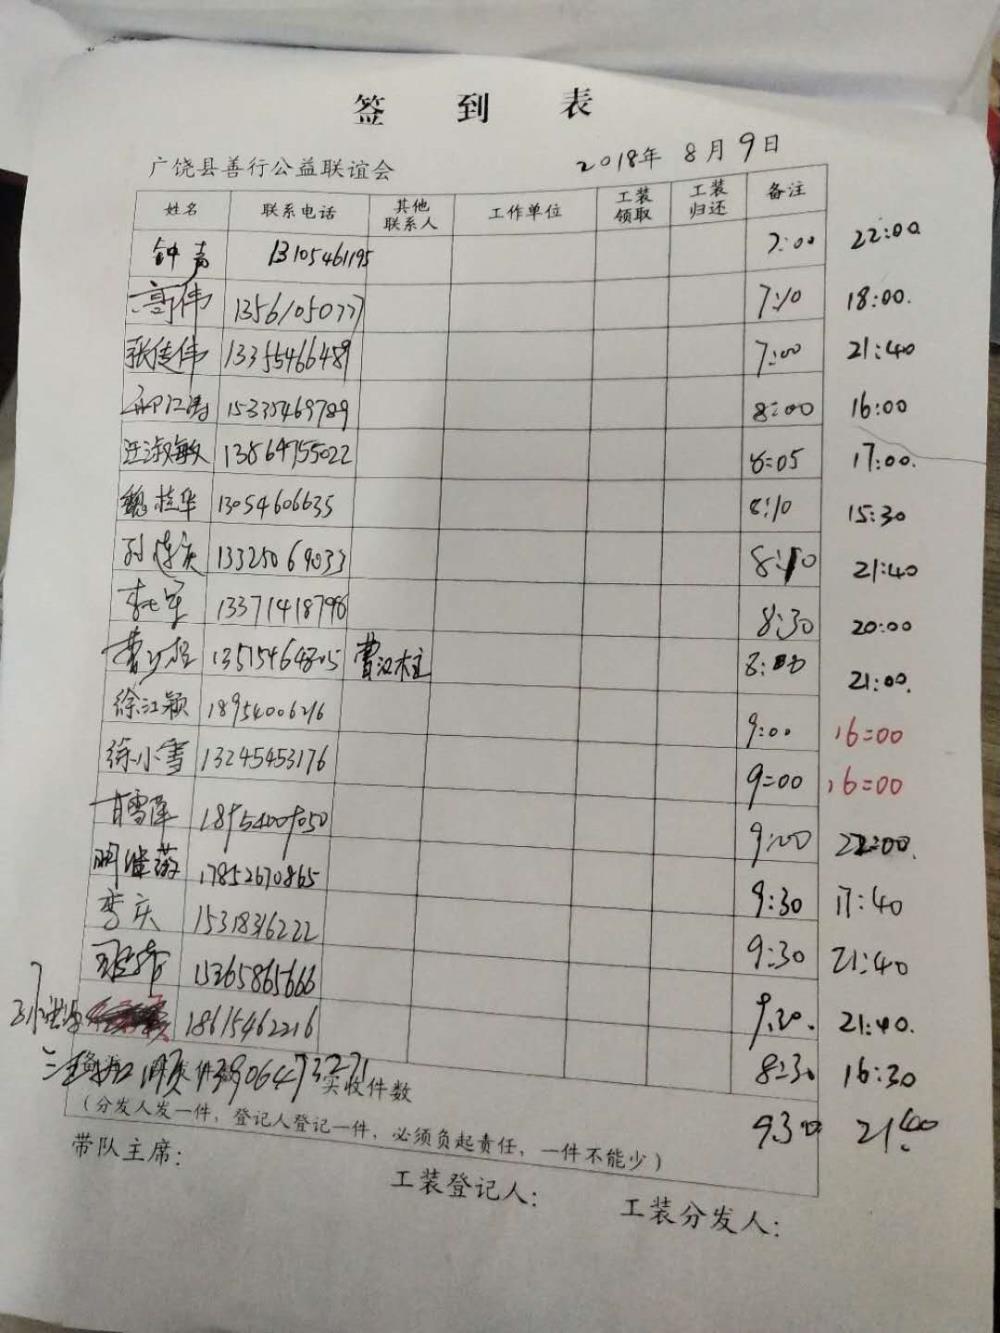 签 到 表
广饶县善行公益联谊会 2018年 8月9日
姓名 联系电话 其他联系人 工作单位 工装领取 工装归还 备注
钟声 13105461195 7:00 22:00
高伟 13561050777 7:10 18:00.
张传伟 13355466489 7:00 21:40
15335469789 8:00 16:00
汪淑敏 13864755022 8:05 17:00.
魏桂华 13054606635 8:10 15:30
孙 庆 13325069033 8:10 21:40
李 军 13371418796 8:30 20:00
曹汉柱 曹汉柱 8: 21:00.
徐江颖 18954006216 9:00 16:00
徐小雪 13245453176 9:00 16:00
甘雪萍 18954009050 9:00 22:00.
17852670865 9:30 17:40
李庆 15318316222 9:30 21:40
15365865666 9:30. 21:40.
18615462216 8:30 16:30
实收件数 9:30 21:40
(分发人发一件，登记人登记一件，必须负起责任，一件不能少)
带队主席： 工装登记人： 工装分发人：